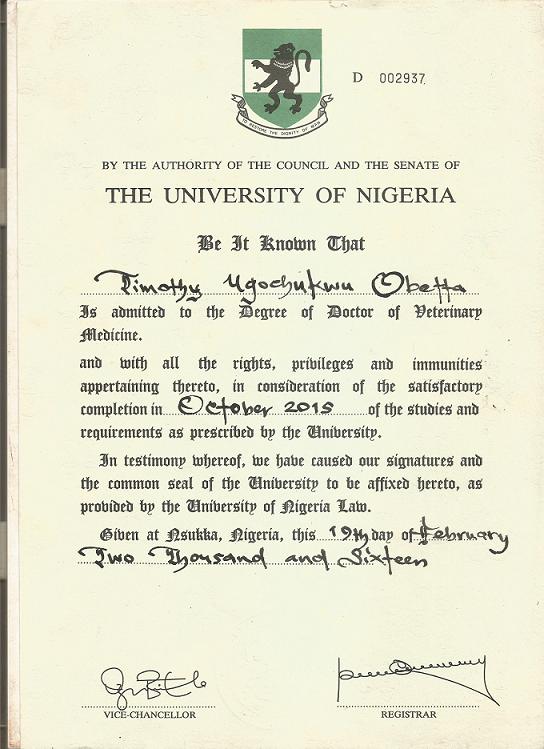 D 002937
TO RESTORE THE DIGNITY OF MAN
BY THE AUTHORITY OF THE COUNCIL AND THE SENATE OF
THE UNIVERSITY OF NIGERIA
Be It Known That
Timothy Ugochukwu Obetta
Is admitted to the Degree of Doctor of Veterinary
Medicine.
and with all the rights, privileges and immunities
appertaining thereto, in consideration of the satisfactory
completion in October 2015 of the studies and
requirements as prescribed by the University.
In testimony whereof, we have caused our signatures and
the common seal of the University to be affixed hereto, as
provided by the University of Nigeria Law.
Given at Nsukka, Nigeria, this 19th day of February
Two Thousand and Sixteen
VICE-CHANCELLOR REGISTRAR